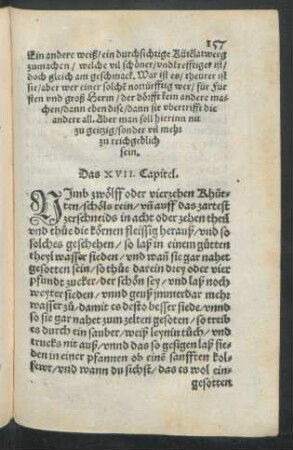 157
Ein andere weiß/ein durchsichtige Kütẽlatwerg
zumachen/ welche vil schöner/ vnd krefftiger ist/
doch gleich am geschmack. War ist es/ theurer ist
sie/ aber wer einer solchẽ nottürfftig wer/ für Für
sten vnd groß Herrn/ der dörfft kein andere ma⸗
chen/dann eben dise/dann sie vbertrifft die
andere all. Aber man soll hierinn nit
zu geitzig/sonder vil mehr
zu reichgeblich
sein.
Das XVII. Capitel.
NImb zwölff oder vierzehen Khüt⸗
ten/schöls rein/ vñ auff das zartest
zerschneids in acht oder zehen theil
vnd thue die körnen fleissig herauß/ vnd so
solches geschehen/ so laß in einem gůtten
theyl wasser sieden/ vnd wañ sie gar nahet
gesotten sein/so thůe darein drey oder vier
pfundt zucker/ der schön sey/ vnd laß noch
weyter sieden/ vnnd geuß jmmerdar mehr
wasser zů/damit es desto besser siede/vnnd
so sie gar nahet zum zelten gesoten/so treib
es durch ein sauber/weiß leynin tůch/vnd
trucks nit auß/vnnd das so gesigen laß sie⸗
den in einer pfannen ob einẽ sanfften kol⸗
fewr/vnd wann du sichst/das es wol ein⸗
gesotten